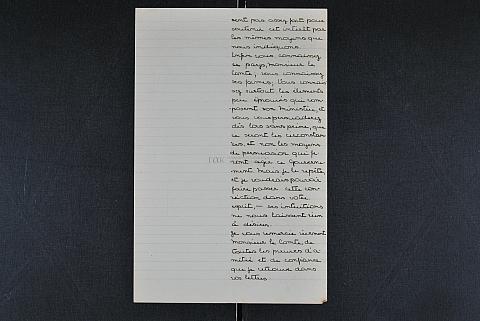 sont pas assez forts pour
soutenir cet intérêt par
les mêmes moyens que
nous indiquons.
Enfin vous connaissez
ce pays, monsieur le
Comte; vous connaissez
ses formes; Vous connais
sez surtout les éléments
peu éprouvés qui com
posent son Ministère, et
vous vous persuaderez
dès lors sans peine, que
ce seront les circonstan
ces, et non les moyens
de persuasion qui fe
ront agir ce Gouverne
ment. Mais je le répète,
et je voudrais pouvoir
faire passer cette con
viction dans votre
esprit, — ses intuitions
ne nous laissent rien
à désirer.
Je vous remercie
monsieur le Comte, de
toutes les preuves d'a
mitié et de confiance
que je retrouve dans
vos lettres.